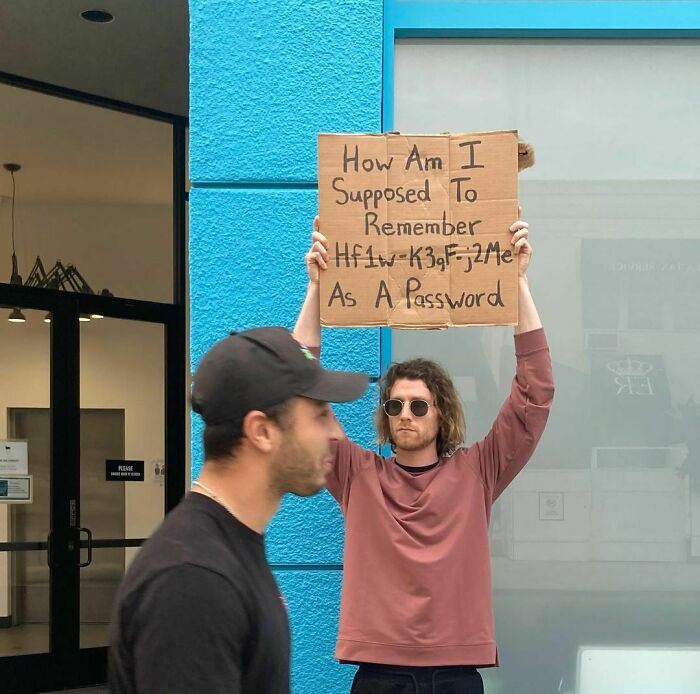 How Am I
Supposed To
Remember
Hf1w-K3gF-j2Me
As A Password
PLEASE